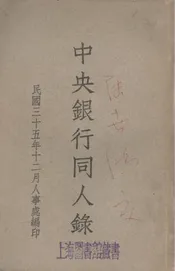 中央銀行同人錄
民國三十五年十二月人事處編印
上海圖書館藏書